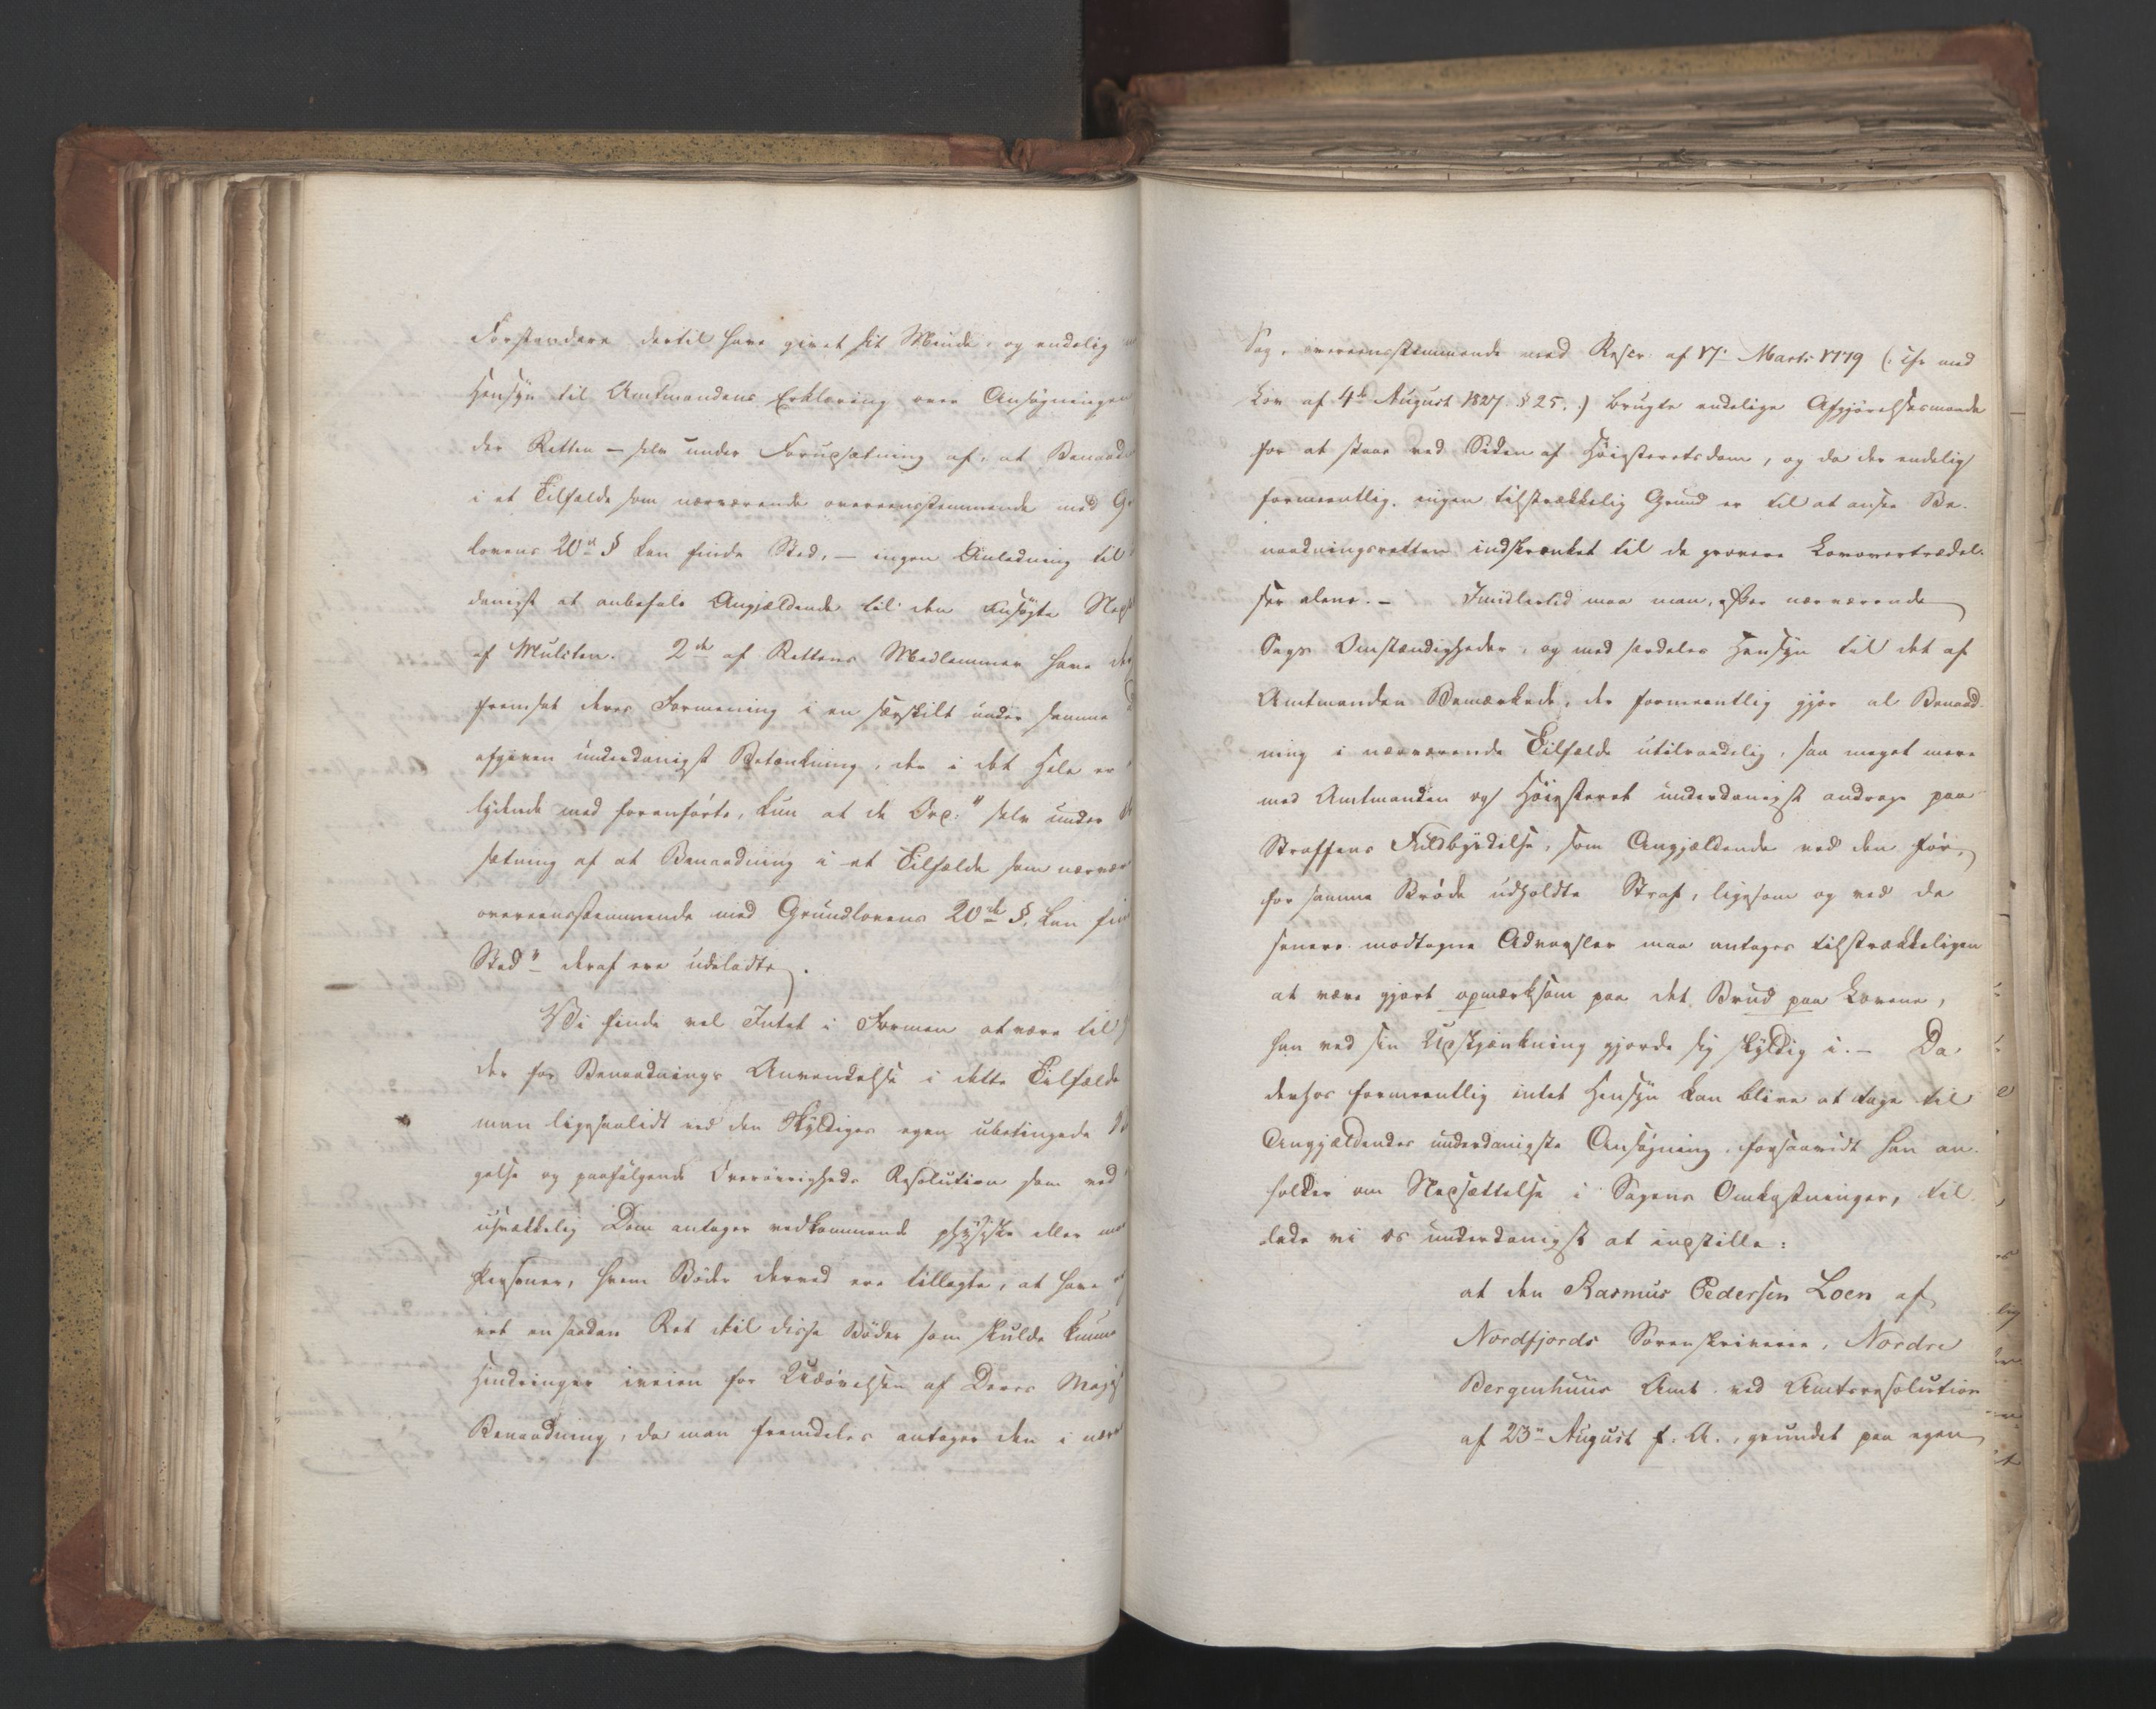 Forstandere dertil have givet sit Minde, og endelig
Hensyn til Amtmandens Erklæring over Ansøgningen
der Retten – selv under Forudsætning af, at Benaad
i et Tilfælde som nærværende overeensstemmende med Gr
lovens 20de § kan finde Sted, – ingen Anledning til
danigst at anbefale Angjældende til den ansøgte Ned
af Mulcten. 2de af Rettens Medlemmer have
fremsat deres Formening i en særskilt under samme
afgiven underdanigst Betænkning, der i det Hele er
lydende med foranførte, kun at de Ord: "selv under
sætning af at Benaadning i et Tilfælde som nærvær
overeensstemmende med Grundlovens 20de §, kan fin
Sted" deraf ere udeladte.
Vi finde vel Intet i Formen at være til
der for Benaadnings Anvendelse i dette Tilfælde
man ligesaalidt ved den Skyldiges egen ubetingede
gelse og paafølgende Overøvrigheds Resolution som ved
usvækkelig Dom antager vedkommende physiske eller mo
Personer, hvem Bøder derved ere tillagte, at have
vet en saadan Ret til disse Bøder som skulde kunne
Hindringer iveien for Udøvelsen af Deres Majest
Benaadning, da man fremdeles antager den i nær
Sag, overeensstemmende med Rescr. af 17. Marts 1779 (: cfr med
Lov af 4de August 1827 § 25. :) brugte endelige Afgjørelsesmaade
for at staae ved Siden af Høiesteretsdom, og da der endelig
formeentlig ingen tilstrækkelig Grund er til at ansee Be-
naadningsretten indskrænket til de grovere Lovovertrædel-
ser alene. – Imidlertid maa man, efter nærværende
Sags Omstændigheder, og med særdeles Hensyn til det af
Amtmanden Bemærkede, der formeentlig gjør al Benaad-
ning i nærværende Tilfælde utilraadelig, saa meget mere
med Amtmanden og Høiesteret underdanigst andrage paa
Straffens Fuldbyrdelse, som Angjældende ved den før,
for samme Brøde udholdte Straf, ligesom og ved de
senere modtagne Advarsler maa antages tilstrækkeligen
at være gjort opmærksom paa det Brud paa Lovene,
han ved sin Udskjænkning gjorde sig skyldig i. – Da
derhos formeentlig intet Hensyn kan blive at tage til
Angjældendes underdanigste Ansøgning, forsaavidt han an-
holder om Nedsættelse i Sagens Omkostninger, til-
lade vi os underdanigst at indstille:
at den Rasmus Pedersen Loen af
Nordfjords Sorenskriverie, Nordre
Bergenhuus Amt ved Amtsresolution
af 23de August f. A., grundet paa egen